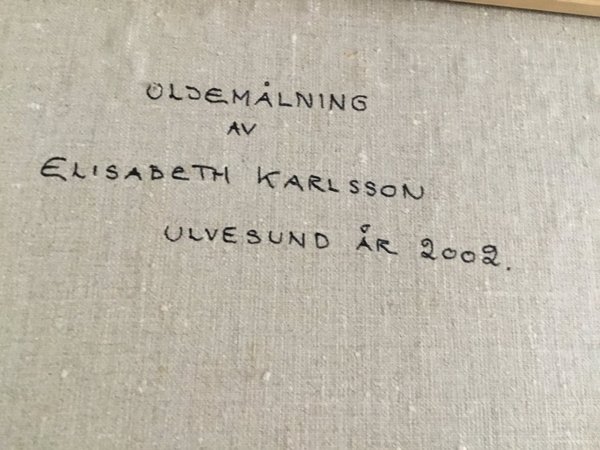 OLJEMÅLNING
AV
ELISABETH KARLSSON
ULVESUND ÅR 2002.